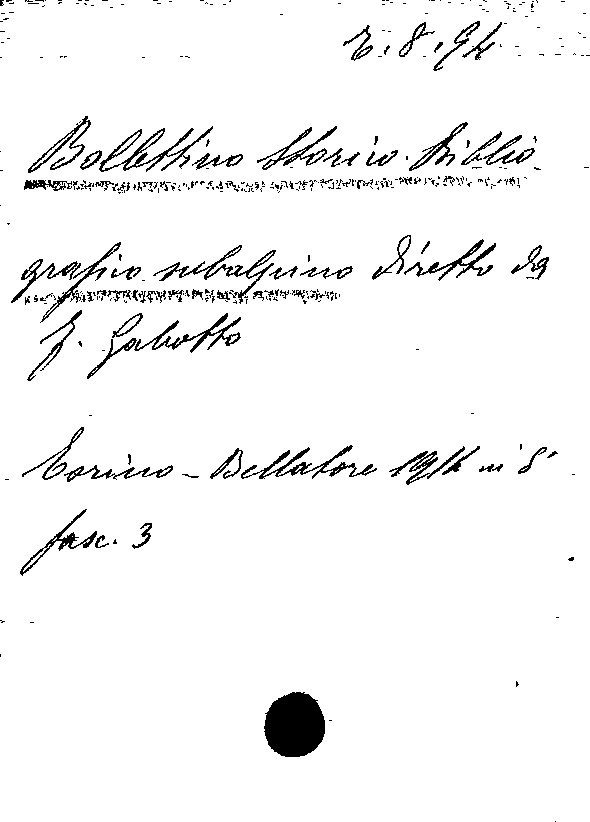 E. 8. 94
Bollettino Storico. Biblio
grafico subalpino diretto da
F. Gabotto
Torino - Bellatore 1914 in 8°
fasc. 3